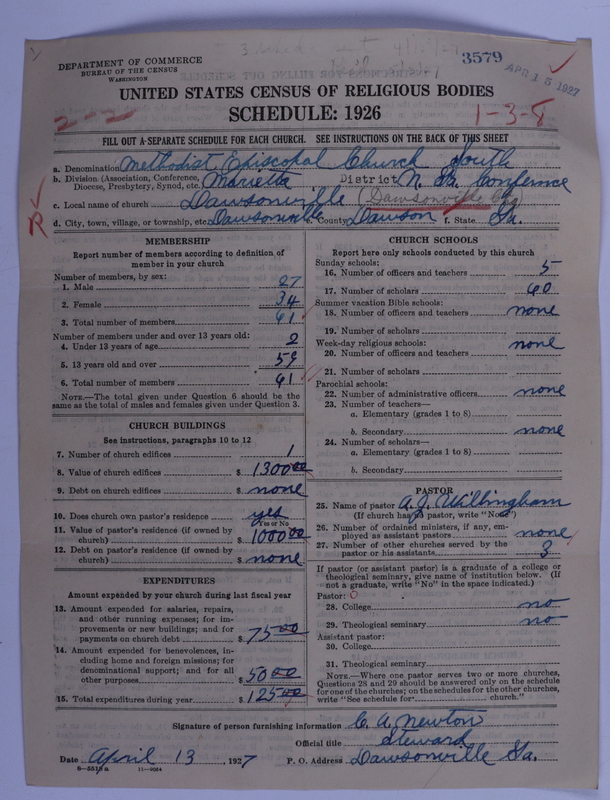 3579
APR 15 1927
DEPARTMENT OF COMMERCE
BUREAU OF THE CENSUS
WASHINGTON
UNITED STATES CENSUS OF RELIGIOUS BODIES
SCHEDULE: 1926
2-2
1-3-8
FILL OUT A SEPARATE SCHEDULE FOR EACH CHURCH. SEE INSTRUCTIONS ON THE BACK OF THIS SHEET
a. Denomination Methodist Episcopal Church South
b. Division (Association, Conference, Diocese, Presbytery, Synod, etc. Marietta District N. Ga. Conference
c. Local name of church Dawsonville (Dawsonville
R
d. City, town, village, or township, etc. Dawsonville e. County Dawson f. State Ga.
MEMBERSHIP
Report number of members according to definition of
member in your church
Number of members, by sex:
1. Male 27
2. Female 34
3. Total number of members 61
Number of members under and over 13 years old:
4. Under 13 years of age 2
5. 13 years old and over 59
6. Total number of members 61
NOTE.—The total given under Question 6 should be the
same as the total of males and females given under Question 3.
CHURCH BUILDINGS
See instructions, paragraphs 10 to 12
7. Number of church edifices 1
8. Value of church edifices $ 1300 00
9. Debt on church edifices $ none
10. Does church own pastor's residence yes
Yes or No
11. Value of pastor's residence (if owned by
church) $ 1000 00
12. Debt on pastor's residence (if owned by
church) $ none
EXPENDITURES
Amount expended by your church during last fiscal year
13. Amount expended for salaries, repairs,
and other running expenses; for im-
provements or new buildings; and for
payments on church debt $ 75 00
14. Amount expended for benevolences, in-
cluding home and foreign missions; for
denominational support; and for all
other purposes $ 50 00
15. Total expenditures during year $ 125 00
CHURCH SCHOOLS
Report here only schools conducted by this church
Sunday schools:
16. Number of officers and teachers 5
17. Number of scholars 60
Summer vacation Bible schools:
18. Number of officers and teachers none
19. Number of scholars
Week-day religious schools: none
20. Number of officers and teachers
21. Number of scholars
Parochial schools:
22. Number of administrative officers none
23. Number of teachers—
a. Elementary (grades 1 to 8)
b. Secondary none
24. Number of scholars—
a. Elementary (grades 1 to 8)
b. Secondary
PASTOR
25. Name of pastor A. J. Willingham
(If church has no pastor, write "No")
26. Number of ordained ministers, if any, em-
ployed as assistant pastors none
27. Number of other churches served by the
pastor or his assistants 3
If pastor (or assistant pastor) is a graduate of a college or
theological seminary, give name of institution below. (If
not a graduate, write "No" in the space indicated.)
Pastor: O
28. College no
29. Theological seminary no
Assistant pastor:
30. College
31. Theological seminary
NOTE.—Where one pastor serves two or more churches,
Questions 28 and 29 should be answered only on the schedule
for one of the churches; on the schedules for the other churches,
write "See schedule for church."
Signature of person furnishing information C. A. Newton
Official title Steward
Date April 13, 1927 P. O. Address Dawsonville Ga.
8—5515 a 11—9064